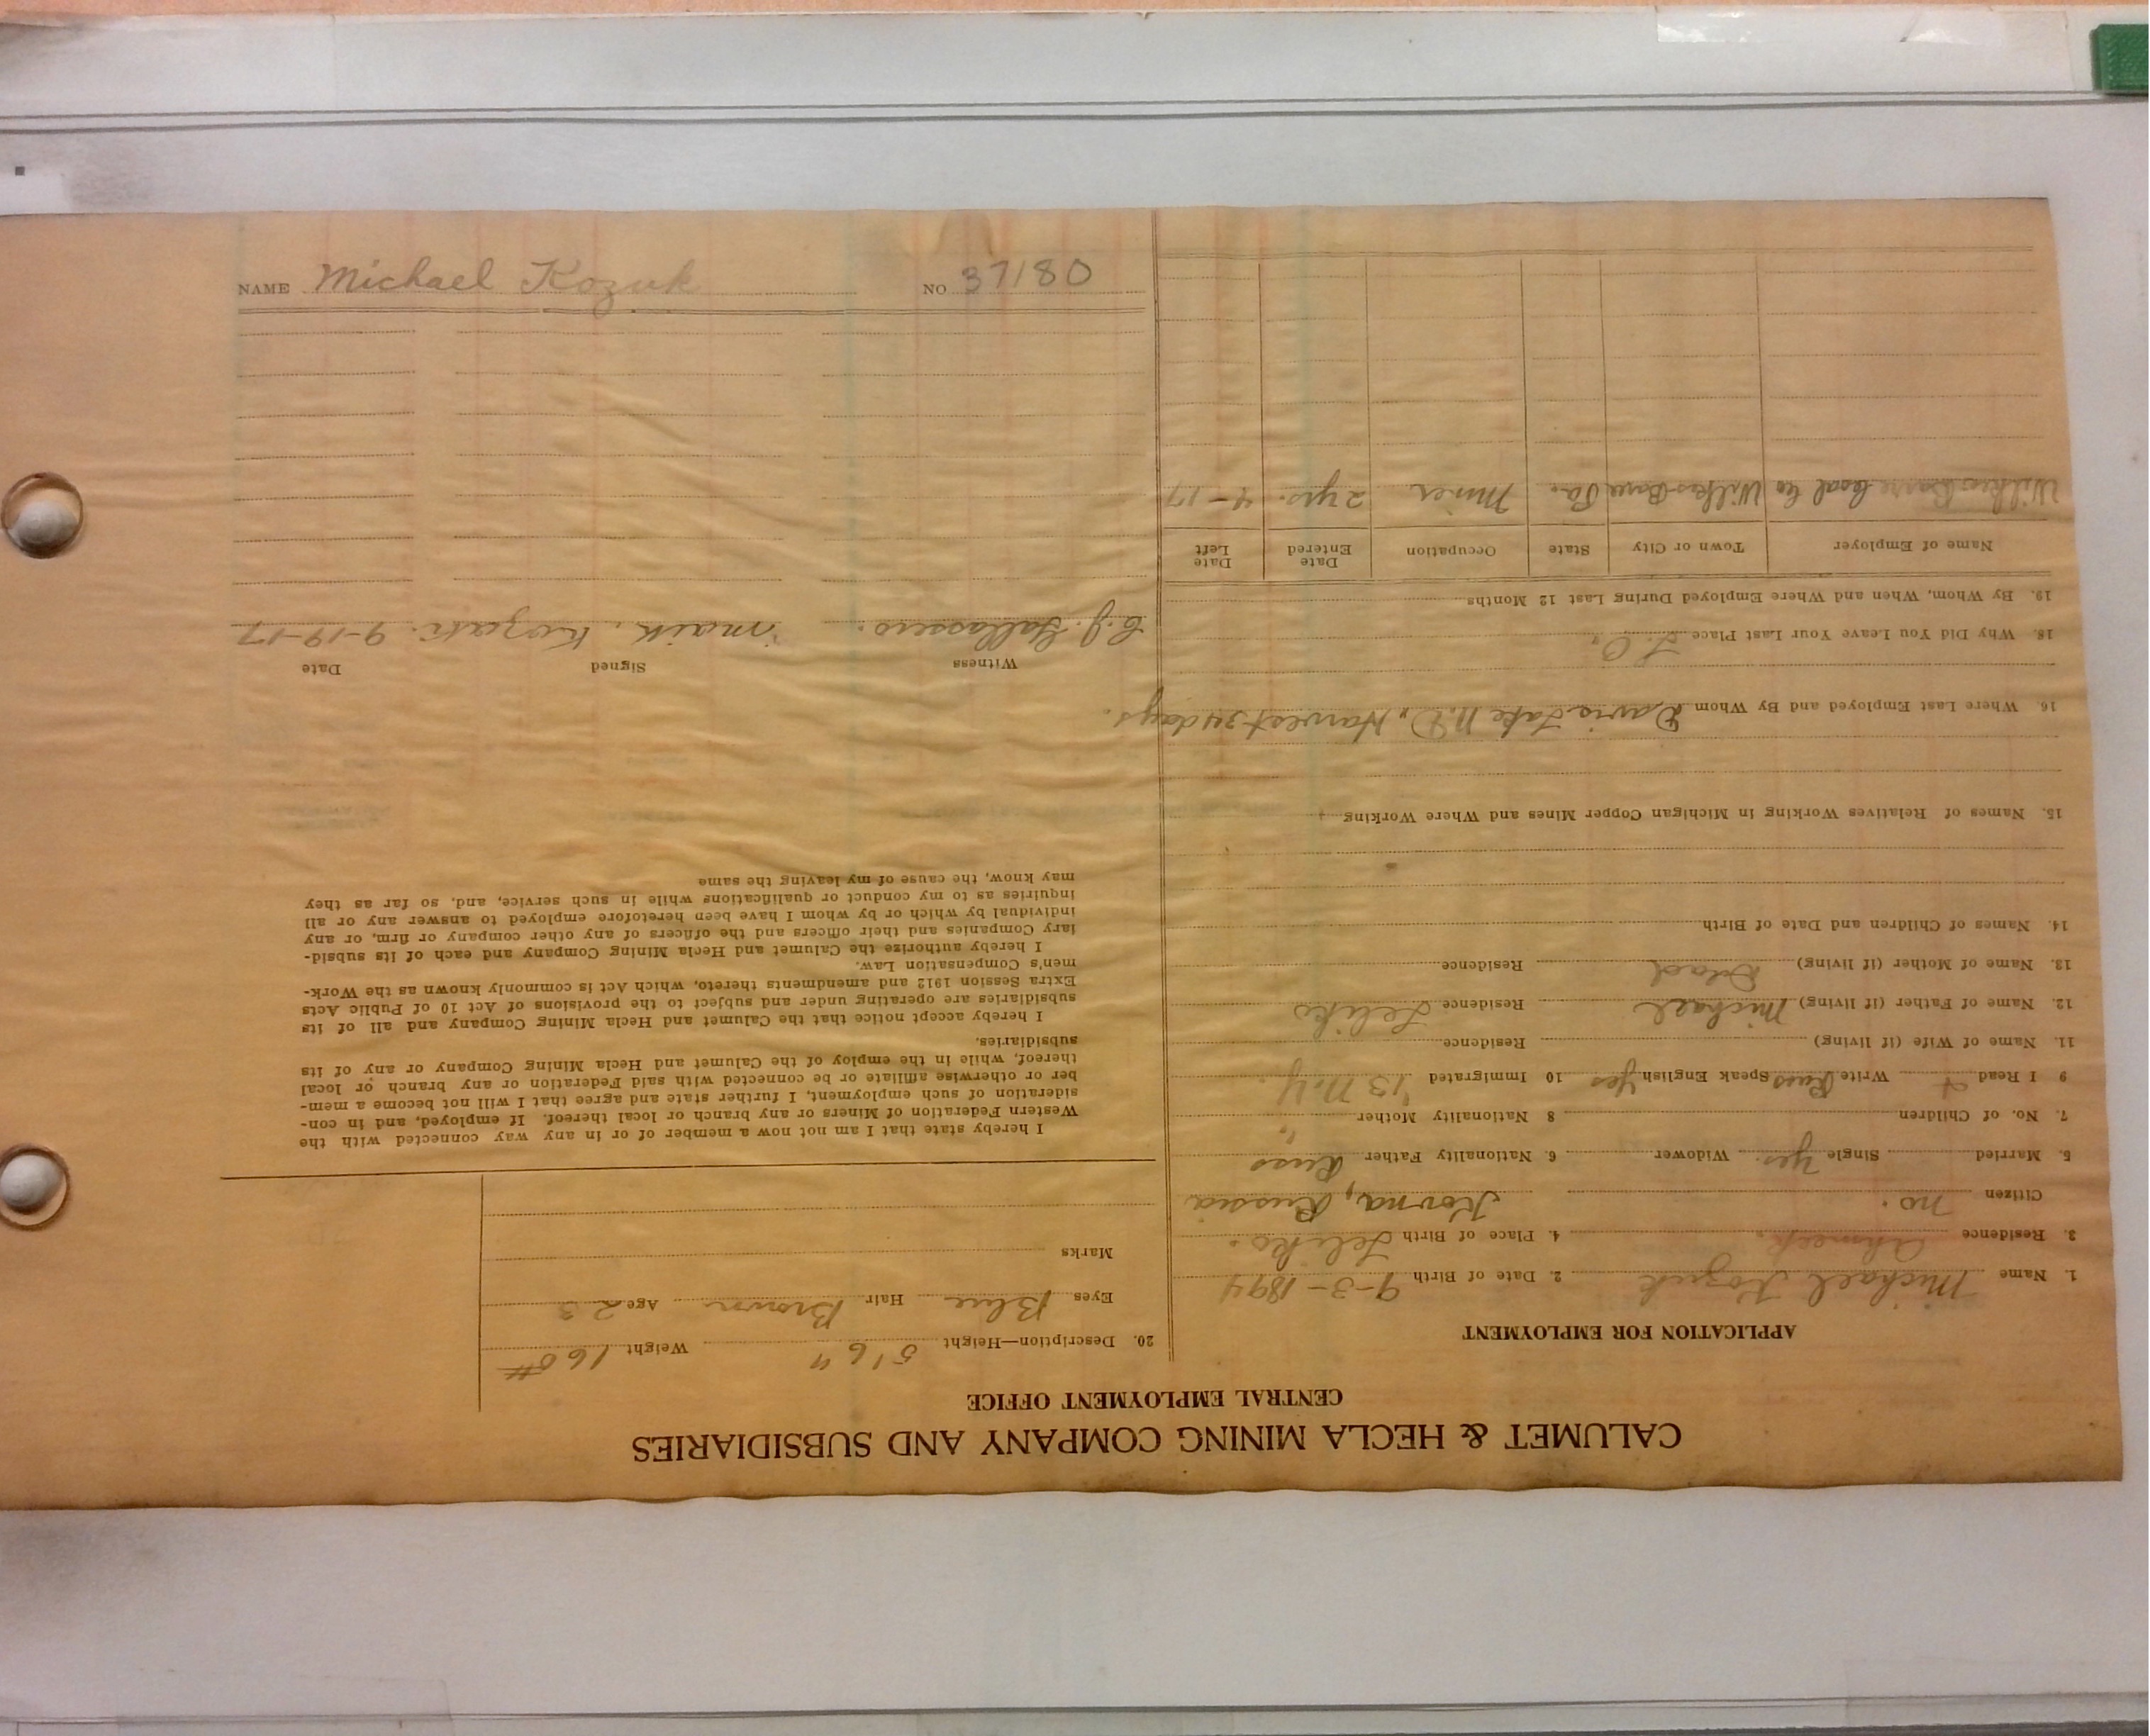 CALUMET & HECLA MINING COMPANY AND SUBSIDIARIES
CENTRAL EMPLOYMENT OFFICE
APPLICATION FOR EMPLOYMENT
1. Name Michael Kozuk 2. Date of Birth 9-3-1894
3. Residence Ahmeek. 4. Place of Birth
Citizen no. Kovna, Russia
5. Married Single Yes. Widower 6. Nationality Father Russ
7. No. of Children 8 Nationality Mother "
9 I Read + Write Russ Speak English Yes 10 Immigrated '13 N.Y.
11. Name of Wife (if living) Residence
12. Name of Father (if living) Michael Residence
13. Name of Mother (if living) Dead Residence
14. Names of Children and Date of Birth
15. Names of Relatives Working in Michigan Copper Mines and Where Working
16. Where Last Employed and By Whom Lake N.D., Harvest 34 days.
18. Why Did You Leave Your Last Place
19. By Whom, When and Where Employed During Last 12 Months
Name of Employer Town or City State Occupation Date Entered Date Left
Wilkes Barre Coal Co Wilkes Barre Pa. Miner 2 yrs. 4-17
20. Description—Height 5'6" Weight 160#
Eyes Blue Hair Brown Age 23
Marks
I hereby state that I am not now a member of or in any way connected with the
Western Federation of Miners or any branch or local thereof. If employed, and in con-
sideration of such employment, I further state and agree that I will not become a mem-
ber or otherwise affiliate or be connected with said Federation or any branch or local
thereof, while in the employ of the Calumet and Hecla Mining Company or any of its
subsidiaries.
I hereby accept notice that the Calumet and Hecla Mining Company and all of its
subsidiaries are operating under and subject to the provisions of Act 10 of Public Acts
Extra Session 1912 and amendments thereto, which Act is commonly known as the Work-
men's Compensation Law.
I hereby authorize the Calumet and Hecla Mining Company and each of its subsid-
iary Companies and their officers and the officers of any other company or firm, or any
individual by which or by whom I have been heretofore employed to answer any or all
inquiries as to my conduct or qualifications while in such service, and, so far as they
may know, the cause of my leaving the same
Witness Signed Date
9-19-17
NAME Michael Kozuk NO 37180